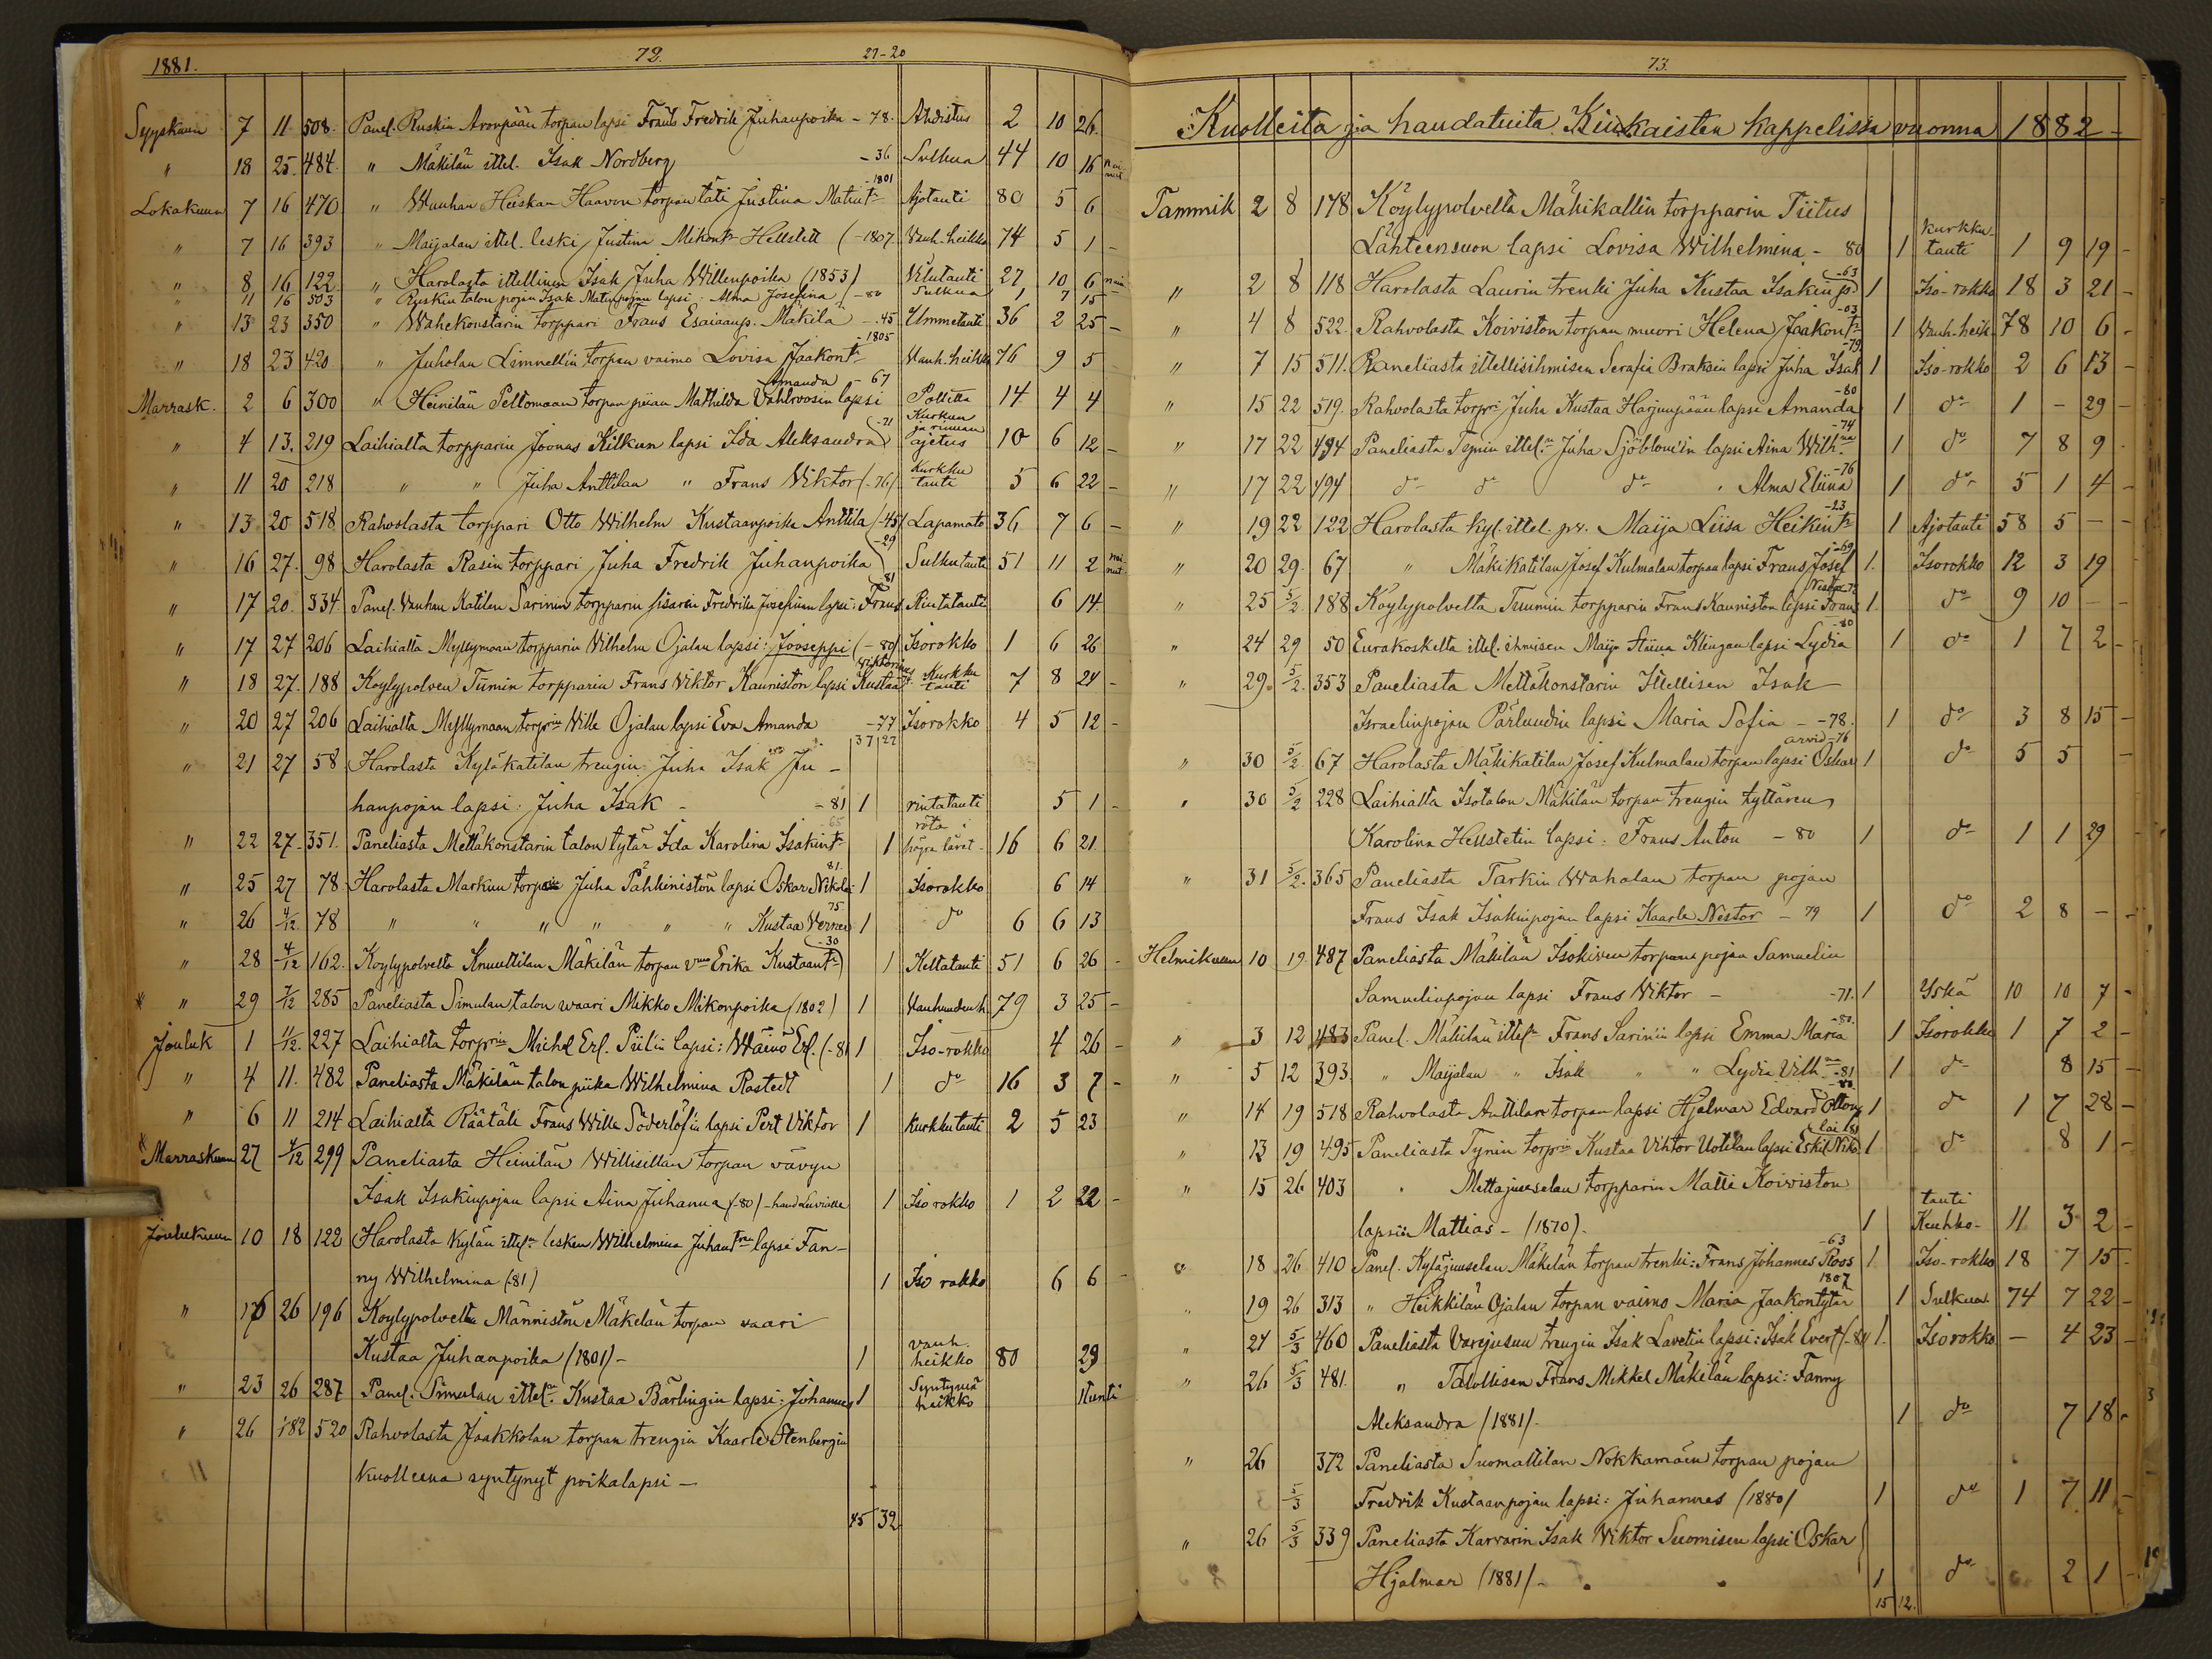 1881.
72.
27-20
Syyskuun 7 11 508. Panel. Ruskin Aronpään torpan lapsi Frans Fredrik Juhanpoika - 78. Ahdistus 2 10 26.
" 18 25. 484. " Mäkilän ittel. Isak Nordberg - 36 Sulkua 44 10 16
Lokakuun 7 16 470 " Wanhan Heiskan Haavon torpan täti Justina Matint. - 1801 Ajotauti 80 5 6
" 7 16 393 " Maijalan ittel. leski Justina Mikont. Hellstett (-1807 Vanh. heikko 74 5 1 -
" 8 16 122. " Harolasta itellinen Isak Juha Willenpoika (1853) Vilutauti 27 10 6
" 11 16 503 " Ruskin talon pojan Isak Matinpojan lapsi: Alma Josefina - 80 Sulkua 1 7 15
" 13 23 350 " Wähekonstarin torppari Frans Esaiaanp. Mäkilä - 45 Ummetauti 36 2 25 -
" 18 23 420 " Juholan Limnellin torpan vaimo Lovisa Jaakont. - 1805 Vanh. heikko 76 9 5
Marrask. 2 6 300 " Heinilän Peltomaan torpan piian Mathilda Vahlroosin lapsi Amanda - 67 Polttta 14 4 4
" 4 13. 219 Laihialta torpparin Joonas Kilkun lapsi Ida Aleksandra -71 Kurkun ja rinnan ajetus 10 6 12 -
" 11 20 218 " " Juha Anttilan " Frans Viktor (-76) Kurkku tauti 5 6 22 -
" 13 20 518 Rahvolasta torppari Otto Wilhelm Kustaanpoika Anttila (-45) Lapamato 36 7 6 -
" 16 27. 98 Harolasta Rasin torppari Juha Fredrik Juhanpoika -29 Sulkutauti 51 11 2
" 17 20. 334. Panel. Vanhan Katilan Sarinin torpparin sisaren Fredrika Josefinan lapsi: Frans 81 Rintatauti 6 14.
" 17 27 206 Laihialta Myllymaan torpparin Vilhelm Ojalan lapsi: Jooseppi (-80) Isorokko 1 6 26
" 18 27. 188 Köylypolven Tumin torpparin Frans Viktor Kauniston lapsi Kustaa Viktorinus Kurkku tauti 7 8 24 -
" 20 27 206 Laihialta Myllymaan torprin Wille Ojalan lapsi Eva Amanda - 77 Isorokko 4 5 12 -
37 27
" 21 27 58 Harolasta Kyläkatilan trengin Juha Isak Ju-
hanpojan lapsi: Juha Isak - - 81 1 rintatauti 5 1 -
" 22 27- 351. Paneliasta Mettäkonstarin talon tytär Ida Karolina Isakint. 65 1 röta i högra låret 16 6 21.
" 25 27 78 Harolasta Markun torparin Juha Pähkinistön lapsi Oskar Nikolai 81. 1 Isorokko 6 14
" 26 4/12. 78 " " " " " " Kustaa Verner 75 1 do 6 6 13
" 28 4/12 162. Köylypolvelta Knuuttilan Mäkilän torpan vmo Erika Kustaant. -30 1 Keltatauti 51 6 26 -
* " 29 7/12 285 Paneliasta Simulan talon waari Mikko Mikonpoika (1802) 1 Vanhuuden h. 79 3 25 -
Jouluk 1 11/12. 227 Laihialta torprin Michel Erl. Piilin lapsi: Wäinö Erl. (-81 1 Iso-rokko 4 26 -
" 4 11. 482 Paneliasta Mäkilän talon piika Wilhelmina Rastedt 1 do 16 3 7 -
" 6 11 214 Laihialta Räätäli Frans Wille Söderlöfin lapsi Pert Viktor 1 Kurkkutauti 2 5 23
* Marraskuun 27 4/12 299 Paneliasta Heinilän Willisillan torpan vävyn
Isak Isakinpojan lapsi Aina Juhanna (-80) 1 Iso rokko 1 2 22 -
Joulukuun 10 18 122 Harolasta Kylän ittel. lesken Wilhelmina Juhant. lapsi Fan-
ny Wilhelmina (-81) 1 Iso rokko 6 6 -
" 16 26 196 Köylypolvelta Männistön Mäkelän torpan vaari
Kustaa Juhanpoika (1801) - 1 vanh. heikko 80 29
" 23 26 287 Panel. Simulan ittel. Kustaa Bärlingin lapsi: Johannes 1 Syntymä heikko 1 tunti
" 26 1 82 520 Rahvolasta Jaakkolan torpan trengin Kaarle Stenbergin
Kuolleena syntynyt poikalapsi -
45 32
73.
Kuolleita ja haudatuita Kiukaisten kappelissa vuonna 1882 -
Tammik 2 8 178 Köylypolvelta Mäkikallin torpparin Tiitus
Lähteensuon lapsi Lovisa Wilhelmina - 80 1 kurkku- tauti 1 9 19 -
" 2 8 118 Harolasta Laurin trenki Juha Kustaa Isakinp. -63 1 Iso-rokko 18 3 21 -
" 4 8 522. Rahvolasta Koiviston torpan muori Helena Jaakont. -03 1 Vanh-heik. 78 10 6 -
" 7 15 511. Paneliasta itellisihmisen Serafia Braksin lapsi Juha Isak -79 1 Iso-rokko 2 6 13 -
" 15 22 519. Rahvolasta torpri Juha Kustaa Harjunpään lapsi Amanda -80 1 do 1 - 29 -
" 17 22 494 Paneliasta Tynin ittel. Juha Sjöblomin lapsi Aina Wilhna -74 1 do 7 8 9 -
" 17 22 494 do do do " Alma Eliina -76 1 do 5 1 4 -
" 19 22 122 Harolasta kyl. ittel. Maija Liisa Heikint. -23 1 Ajotauti 58 5 - -
" 20 29. 67 " Mäkikatilan Josef Kulmalan torpan lapsi Frans Josef -69 1. Isorokko 12 3 19
" 25 5/2. 188 Köylypolvelta Tuumin torpparin Frans Kauniston lapsi Frans Nestor 1. do 9 10 - -
" 24 29 50 Eurakoskelta ittel. ihmisen Maija Stiina Klingan lapsi Lydia -80 1 do 1 7 2 -
" 29. 5/2. 353 Paneliasta Mettäkonstarin Itellisen Isak
Israelinpojan Pärlundin lapsi Maria Sofia - -78. 1 do 3 8 15 -
" 30 5/2. 67 Harolasta Mäkikatilan Josef Kulmalan torpan lapsi Oskar arvid -76 1 do 5 5 -
" 30 5/2 228 Laihialta Isotalon Mäkilän torpan trengin tyttären
Karolina Hellstetin lapsi: Frans Anton - 80 1 do 1 1 29
" 31 5/2. 365 Paneliasta Tarkin Wahalan torpan pojan
Frans Isak Isakinpojan lapsi Kaarle Nestor - 79 1 do 2 8 - -
Helmikuun 10 19. 487 Paneliasta Mäkilän Isokiven torpan pojan Samuelin
Samuelinpojan lapsi Frans Viktor - -71. 1 Yskä 10 10 7 -
" 3 12 483 Panel. Mäkilän ittel. Frans Sarinin lapsi Emma Maria -80. 1 Isorokko 1 7 2 -
" 5 12 393. " Maijalan " Isak " " Lydia Vilh. -81 1 do 8 15 -
" 14 19 518 Rahvolasta Anttilan torpan lapsi Hjalmar Edvard Otton -80. 1 do 1 7 28 -
" 13 19 495 Paneliasta Tynin torprin Kustaa Viktor Uotilan lapsi Eskil Niko lai (81 1 do 8 1 -
" 15 26 403 " Mettäjuuselan torpparin Matti Koiviston
lapsi Mattias - (1870) - 1 Keuhko- tauti 11 3 2 -
" 18 26. 410 Panel. Kyläjuuselan Mäkelän torpan trenki: Frans Johannes Roos -63 1. Iso-rokko 18 7 15 -
" 19 26 313 " Heikkilän Ojalan torpan vaimo Maria Jaakontytär 1807 1 Sulkua. 74 7 22 -
" 21 5/3 460 Paneliasta Varejusun trengin Isak Lavetin lapsi: Isak Evert (-81) 1. Isorokko - 4 23 -
" 26 5/3 481. " Talollisen Frans Mikkel Mäkilän lapsi: Fanny
Aleksandra (1881) - 1 do 7 18 -
" 26 372 Paneliasta Suomattilan Nokkamäen torpan pojan
5/3 Fredrik Kustaanpojan lapsi: Juhannes (1880) 1 do 1 7 11 -
" 26 5/3 339 Paneliasta Karvarin Isak Viktor Suomisen lapsi Oskar
Hjalmar (1881) - 1 do 2 1 -
15 12.